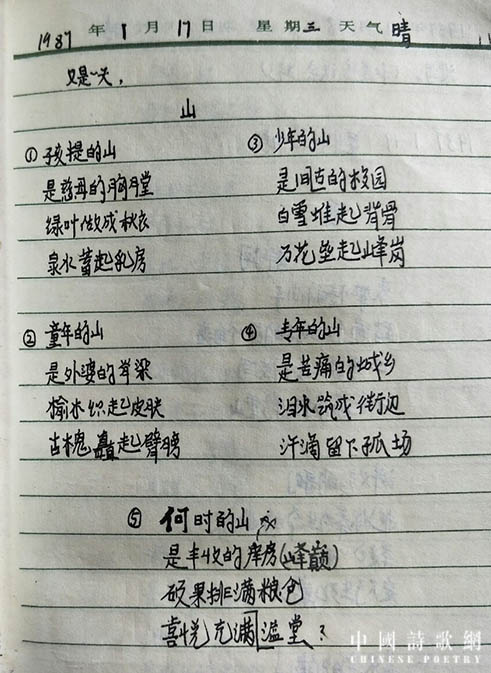 1987年1月17日 星期三 天气晴
又是一天，
山
①孩提的山
是慈母的胸膛
绿叶做成秋衣
泉水蓄起乳房
②童年的山
是外婆的脊梁
榆木织起皮肤
古槐矗起臂膀
③少年的山
是回忆的校园
白雪堆起背骨
万花垫起峰岗
④青年的山
是苦痛的城乡
泪水筑成街边
汗滴留下孤场
⑤何时的山
是丰收的库房(峰巅)
硕果排满粮仓
喜悦充满溢堂？
中國詩歌網
CHINESE POETRY